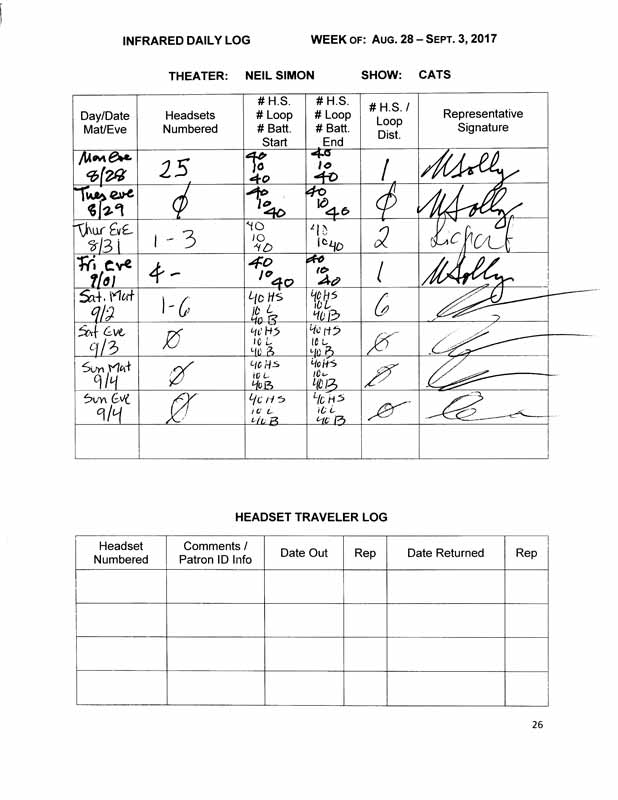 INFRARED DAILY LOG WEEK OF: AUG. 28 – SEPT. 3, 2017
THEATER: NEIL SIMON SHOW: CATS
Day/Date Mat/Eve Headsets Numbered # H.S. # Loop # Batt. Start # H.S. # Loop # Batt. End # H.S. / Loop Dist. Representative Signature
Mon Eve 8/28 25 40 10 40 40 10 40 1 M Solly
Tues eve 8/29 Ø 40 10 40 40 10 40 Ø M Solly
Thur EvE 8/31 1-3 40 10 40 40 10 40 2
Fri Eve 9/01 4- 40 10 40 40 10 40 1 M Solly
Sat. Mat 9/2 1-6 40 HS 10 L 40 B 40 HS 10 L 40 B 6
Sat Eve 9/3 Ø 40 HS 10 L 40 B 40 HS 10 L 40 B Ø
Sun Mat 9/4 Ø 40 HS 10 L 40 B 40 HS 10 L 40 B Ø
Sun Eve 9/4 Ø 40 HS 10 L 40 B 40 HS 10 L 40 B Ø
HEADSET TRAVELER LOG
Headset Numbered Comments / Patron ID Info Date Out Rep Date Returned Rep
26